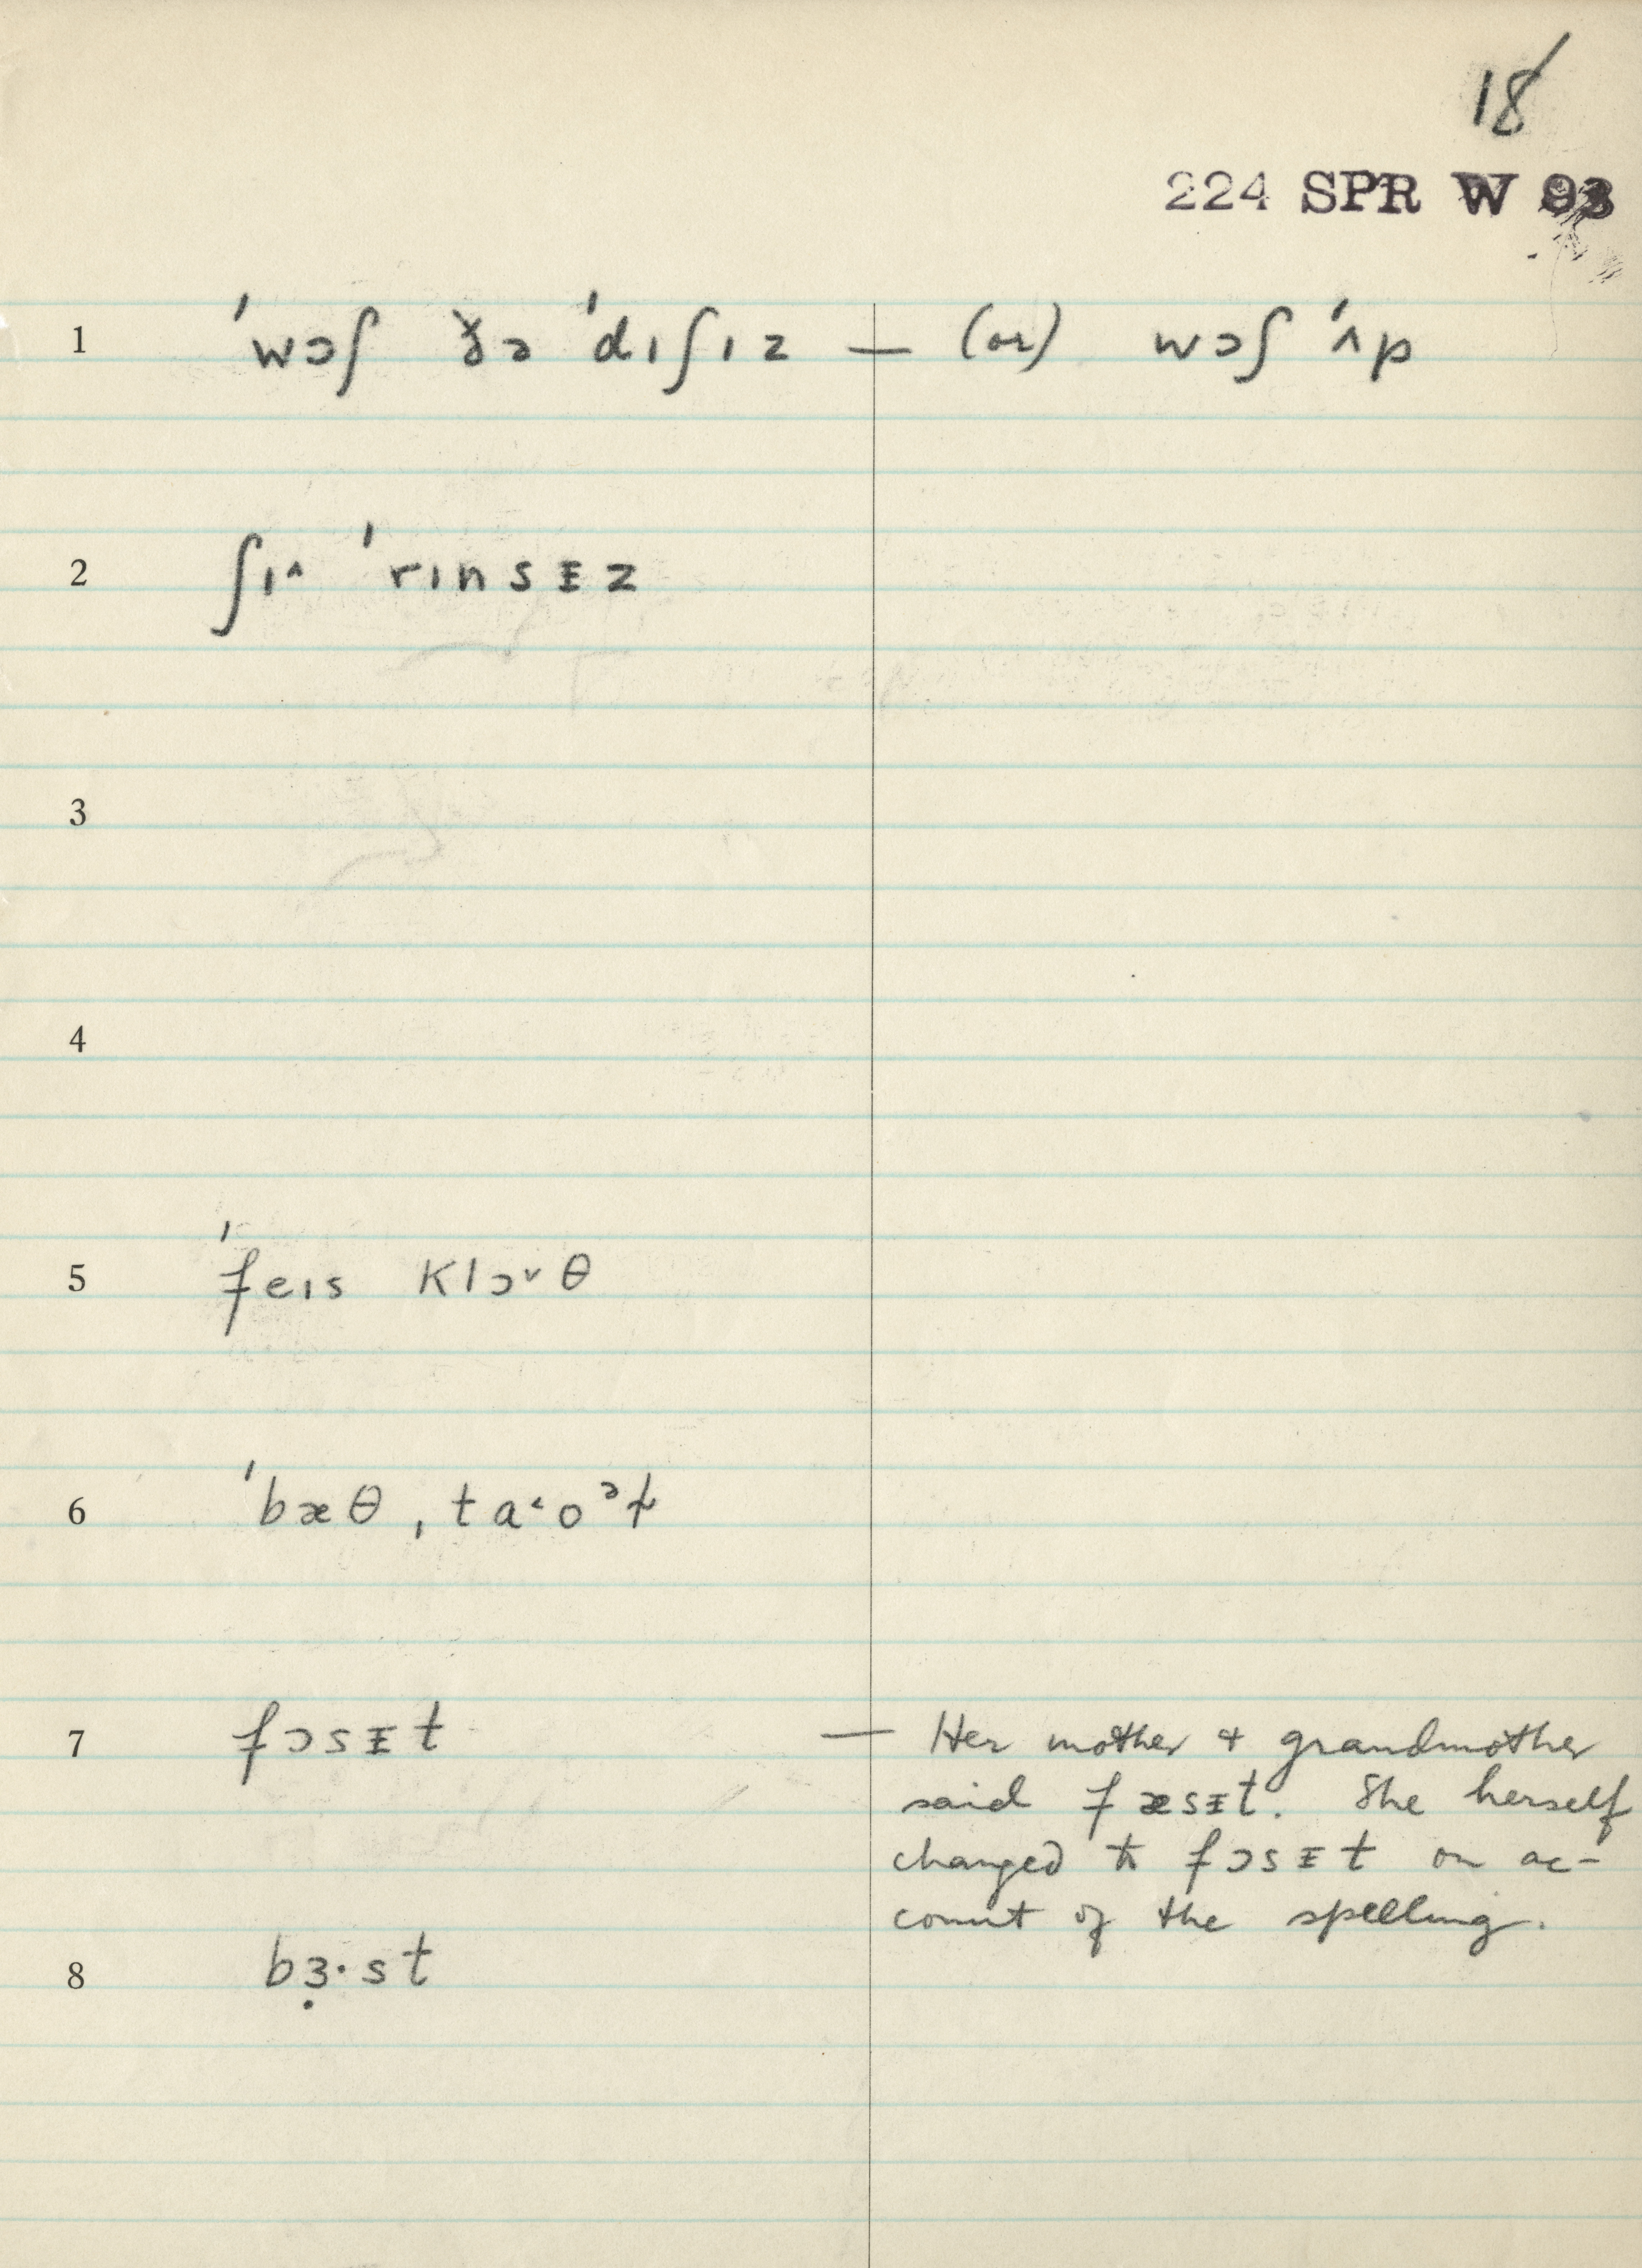 18
224 SPR W 93
1 ˈwɔʃ ðə ˈdɪʃɪz — (or) wɔʃ ˈʌp
2 ʃɪ^ ˈrɪnsᵻz
3
4
5 ˈfeɪs klɔ˅θ
6 ˈbæθ ˌta˂ʊᵊɫ
7 fɔsᵻt — Her mother & grandmother
said fæsᵻt. She herself
changed to fɔsᵻt on ac-
count of the spelling.
8 bɜ̣·st